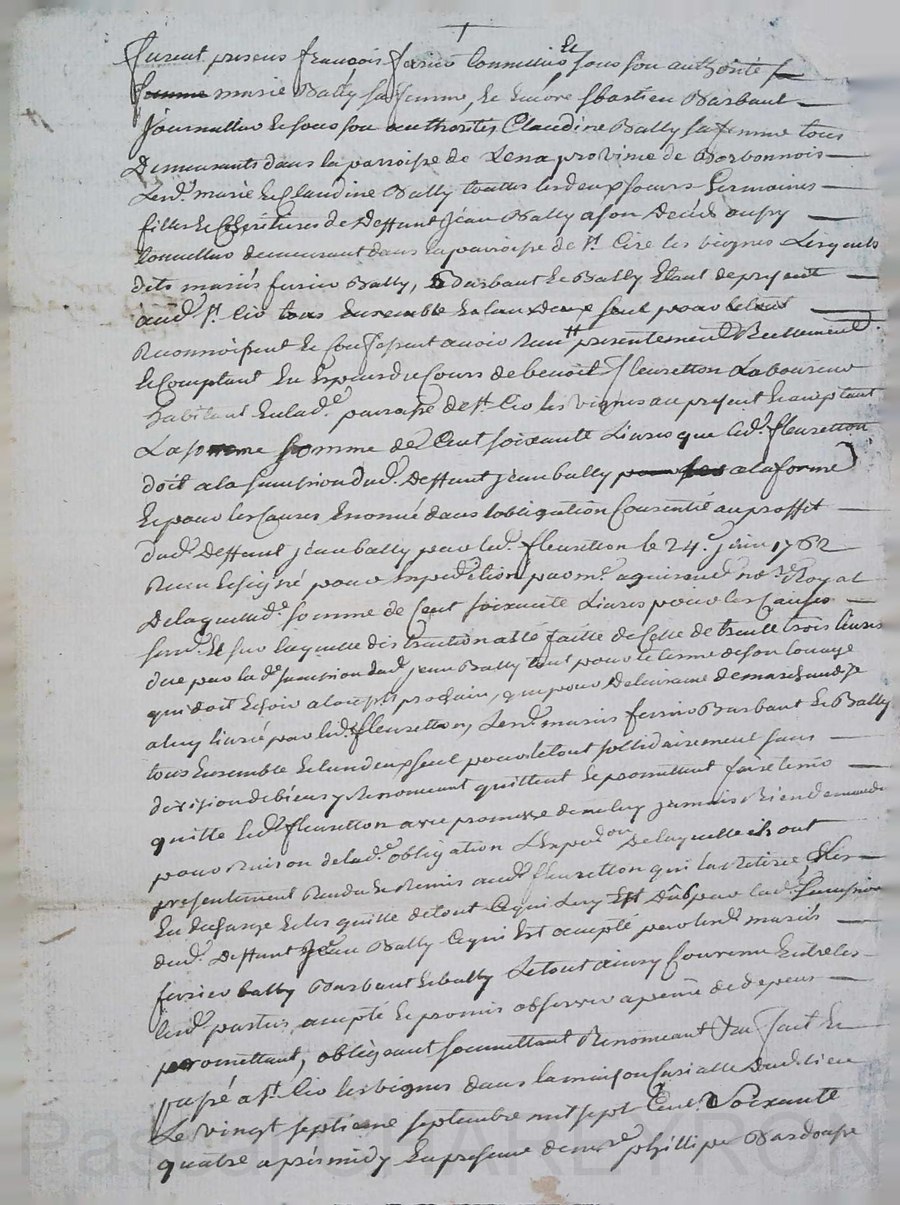 furent presens françois ferrier tonnellier & sous son authorité
marie Bally sa femme, Et Encore sbastien Barbaut
Journallier Et sous son authorités Claudine Bally sa femme tous
Demeurants dans la parroisse de Lena province de Borbonnois
Lesd. marie Et Claudine Bally toutes les deux soeurs Germaines
filles Et Heritieres de Deffunt Jean Bally a son Decés aussy
tonnellier demeurant dans la parroisse de st. Cire les vignes Lesquels
dits mariés ferrier Bally, Barbaut Et Bally Etant de present
aud. st. Cir tous Ensemble Et lun deux seul pour le tout
Reconnoissent Et Confessent avoir Reçu presentement Reellement
Et Comptant En Especes du Cours de benoit fleuretton Laboureur
habitant En lad.e parroisse de st. Cir les vignes au present Et acceptant
La somme de Cent soixante Livres que led. fleuretton
doit a la succession dud. Deffunt jean bally a la forme
Et pour les Causes Enoncé dans lobligation Consentie au proffit
dud. Deffunt jean bally par led. fleuretton le 24.e juin 1762
Reçu Et signé pour Expedition par me. aguiraud no.re Royal
De laquelle d.e somme de Cent soixante Livres pour les Causes
susd. Et sur laquelle distraction a été faitte de Celle de trente trois livres
due par lad.e succession dud. jean Bally tant pour le terme de son louage
qui doit Echoir a la prochain, que pour Delivrance de marchandise
a luy livré par led. fleuretton, Lesd. mariés ferrier Barbaut Et Bally
tous Ensemble Et lun deux seul pour le tout sollidairement sans
division de biens y Renonceant quittent Et promettent faire tenir
quitte led. fleuretton avec promesse de ne luy jamais Rien demander
pour Raison de lad.e obligation L'Expedon De laquelle ils ont
presentement Rendu Et Remis aud. fleuretton qui la Retirée,
En decharge Et les quitte de tout Ce qui Luy Est Dub par lad. succession
dud. Deffunt Jean Bally Ce qui Est accepté par lesd. mariés
ferrier bally Barbaut Et bally Le tout ainsy Convenu Entre les
lesd. parties, accepté Et promis observer a peine de depens
promettant, obligeant soumettant Renonceant &a fait Et
passé a st. Cir les vignes dans la maison Curialle dud. lieu
Le vingt septieme septembre mil sept Cent soixante
quatre aprés midy En presence de mre phillipe Dardouse